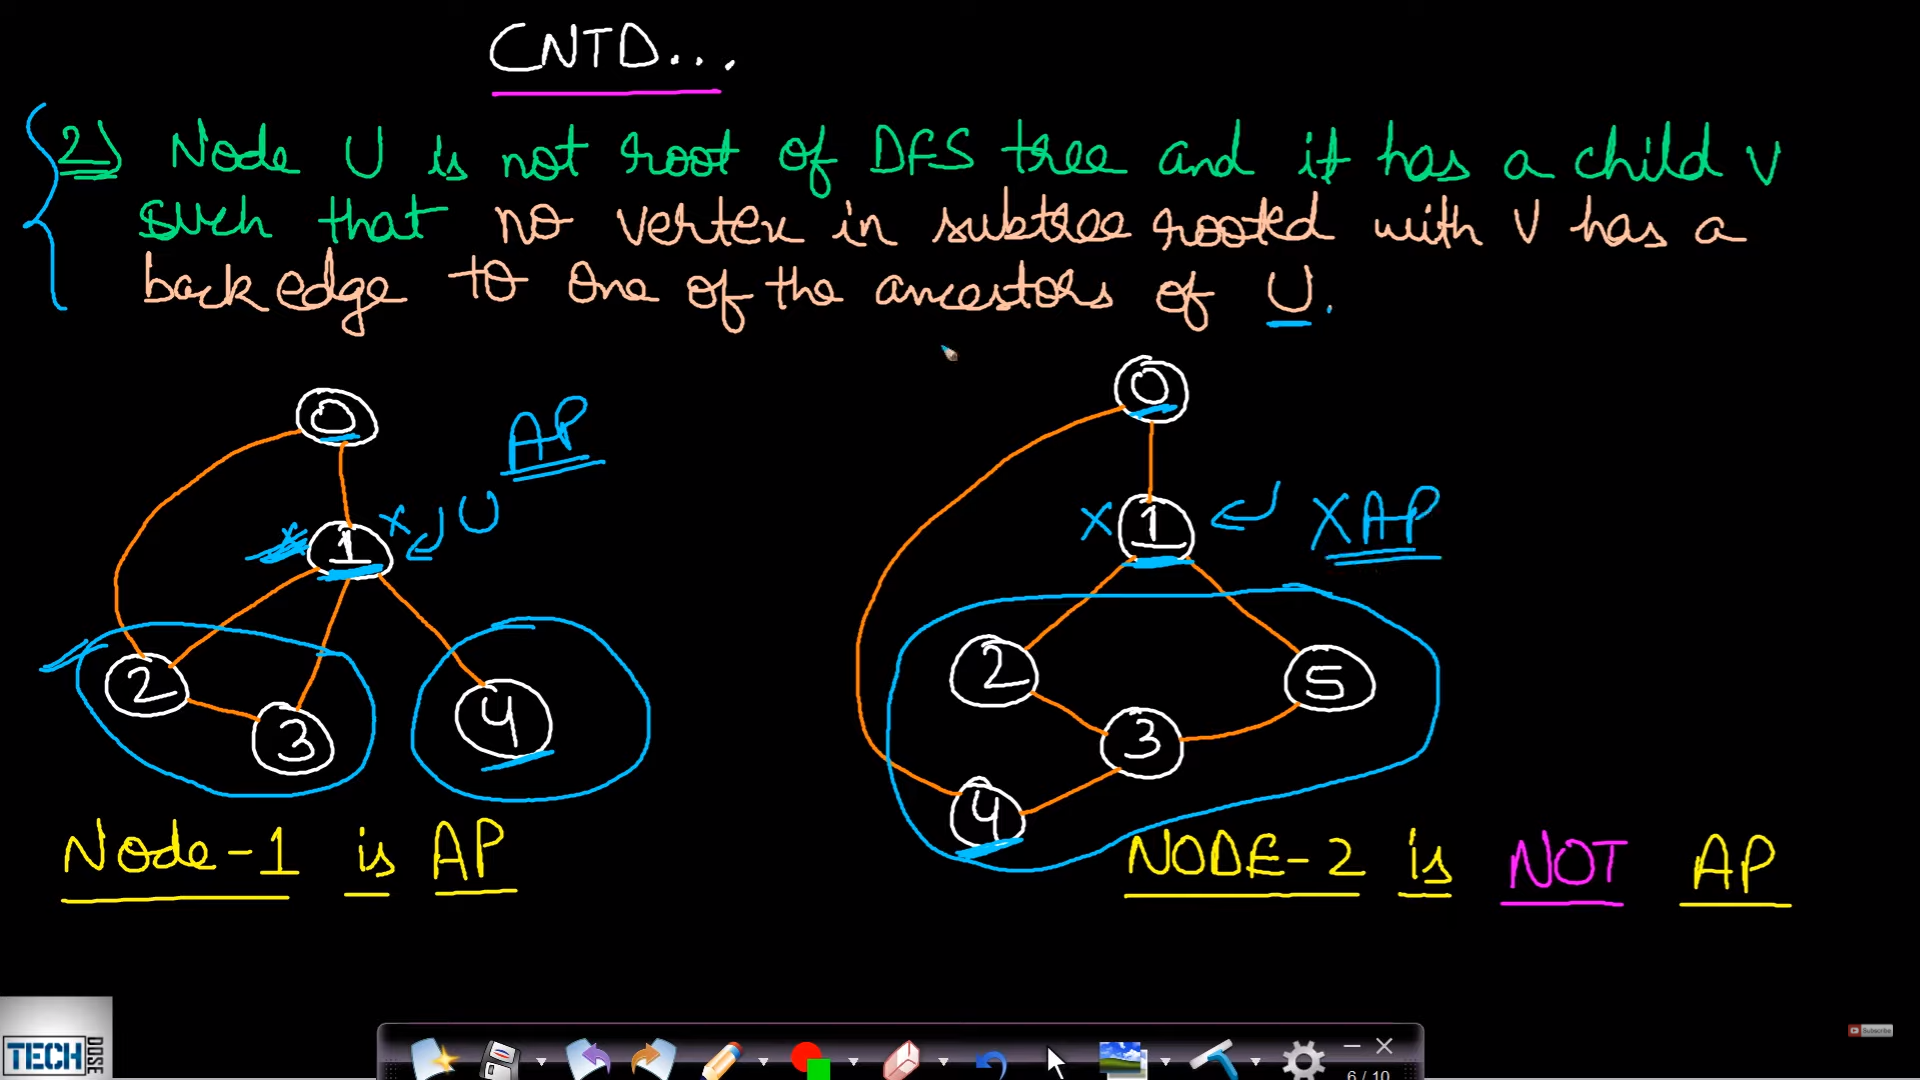 CNTD...
2) Node U is not root of DFS tree and it has a child V
such that no vertex in subtree rooted with V has a
back edge to one of the ancestors of U.
0
AP
1
x
U
2
3
4
0
x
1
XAP
2
5
3
4
Node-1 is AP
NODE-2 is NOT AP
TECH
DOSE
Subscribe
6 / 10